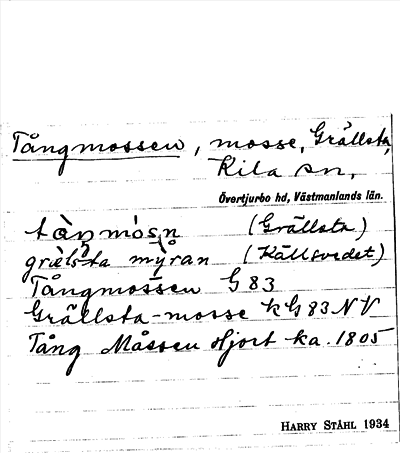 Tångmossen, mosse, Grällsta,
Kila sn,
Övertjurbo hd, Västmanlands län.
tàŋmòsn (Grällsta)
grèlsta myran (Källsvedet)
Tångmossen G 83
Grällsta-mosse kG 83 NV
Tång Måssen Hjort ka. 1805
HARRY STÅHL 1934